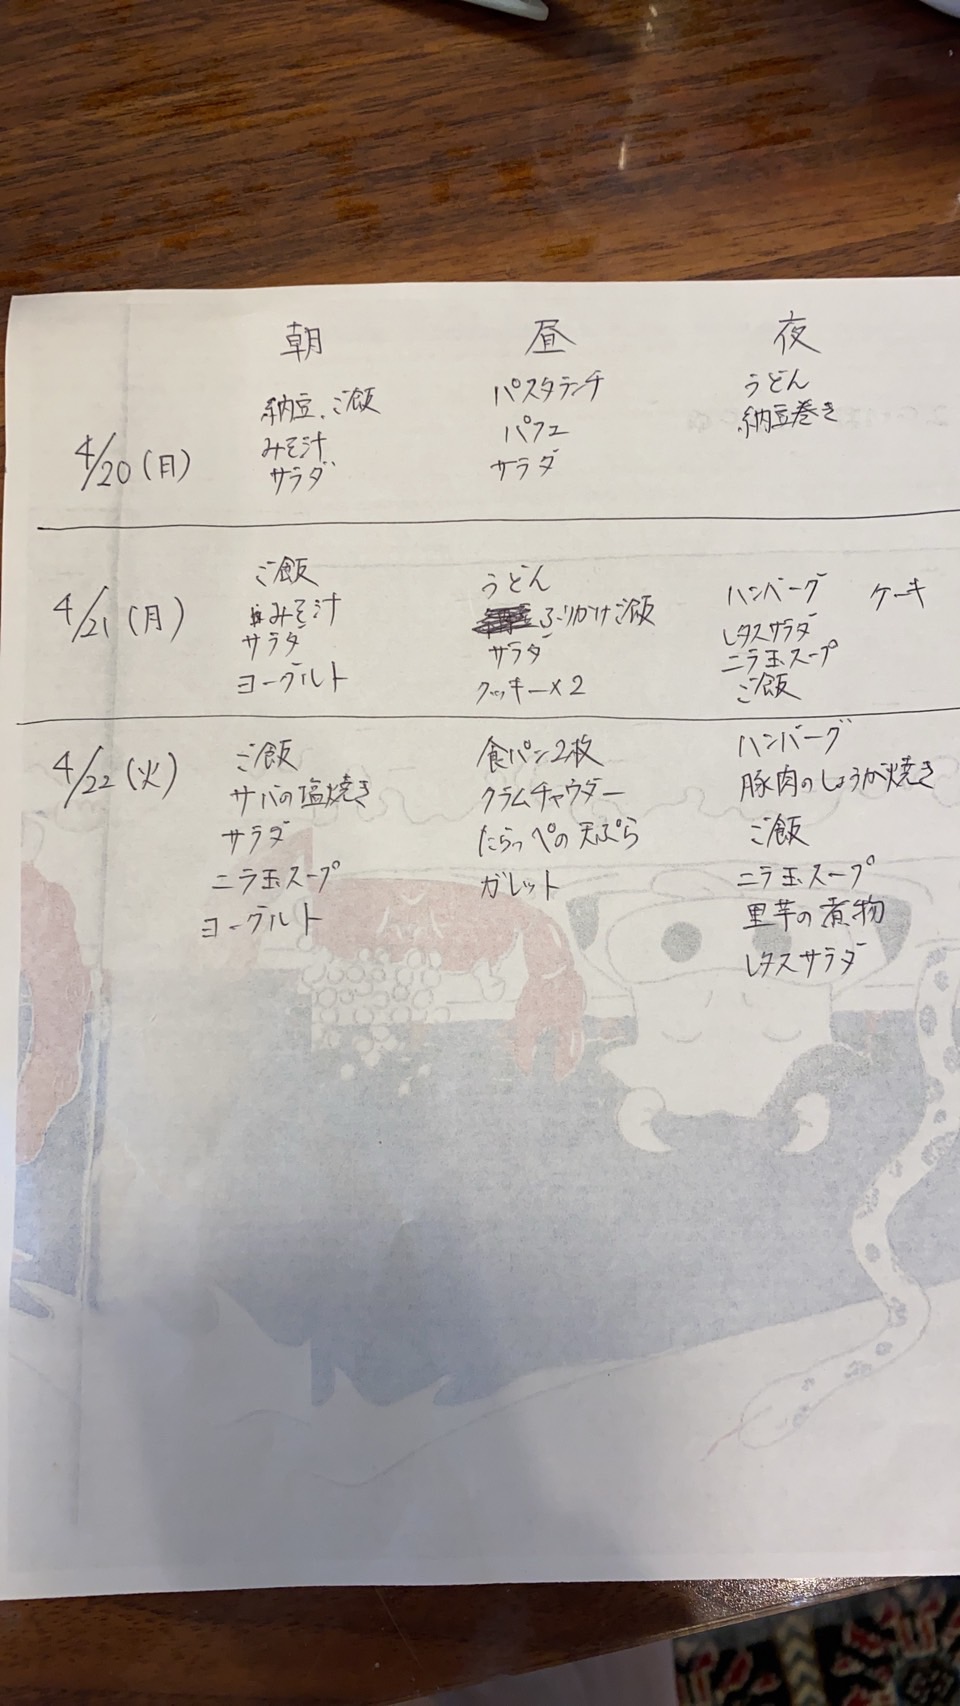 朝 昼 夜
4/20(日)
納豆、ご飯
みそ汁
サラダ
パスタランチ
パフェ
サラダ
うどん
納豆巻き
4/21(月)
ご飯
みそ汁
サラダ
ヨーグルト
うどん
ふりかけご飯
サラダ
クッキー×2
ハンバーグ
レタスサラダ
ニラ玉スープ
ご飯
ケーキ
4/22(火)
ご飯
サバの塩焼き
サラダ
ニラ玉スープ
ヨーグルト
食パン2枚
クラムチャウダー
たらっぺの天ぷら
ガレット
ハンバーグ
豚肉のしょうが焼き
ご飯
ニラ玉スープ
里芋の煮物
レタスサラダ